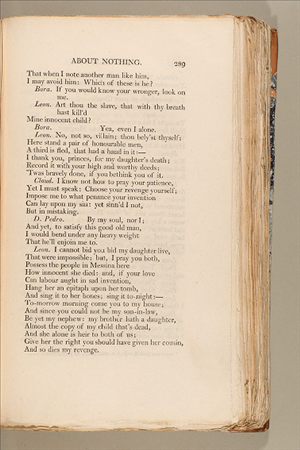 ABOUT NOTHING. 289
That when I note another man like him,
I may avoid him: Which of these is he?
Bora. If you would know your wronger, look on
me.
Leon. Art thou the slave, that with thy breath
hast kill'd
Mine innocent child?
Bora. Yea, even I alone.
Leon. No, not so, villain; thou bely'st thyself;
Here stand a pair of honourable men,
A third is fled, that had a hand in it:—
I thank you, princes, for my daughter's death;
Record it with your high and worthy deeds;
'Twas bravely done, if you bethink you of it.
Claud. I know not how to pray your patience,
Yet I must speak: Choose your revenge yourself;
Impose me to what penance your invention
Can lay upon my sin: yet sinn'd I not,
But in mistaking.
D. Pedro. By my soul, nor I;
And yet, to satisfy this good old man,
I would bend under any heavy weight
That he'll enjoin me to.
Leon. I cannot bid you bid my daughter live,
That were impossible; but, I pray you both,
Possess the people in Messina here
How innocent she died: and, if your love
Can labour aught in sad invention,
Hang her an epitaph upon her tomb,
And sing it to her bones; sing it to-night:—
To-morrow morning come you to my house;
And since you could not be my son-in-law,
Be yet my nephew: my brother hath a daughter,
Almost the copy of my child that's dead,
And she alone is heir to both of us;
Give her the right you should have given her cousin,
And so dies my revenge.